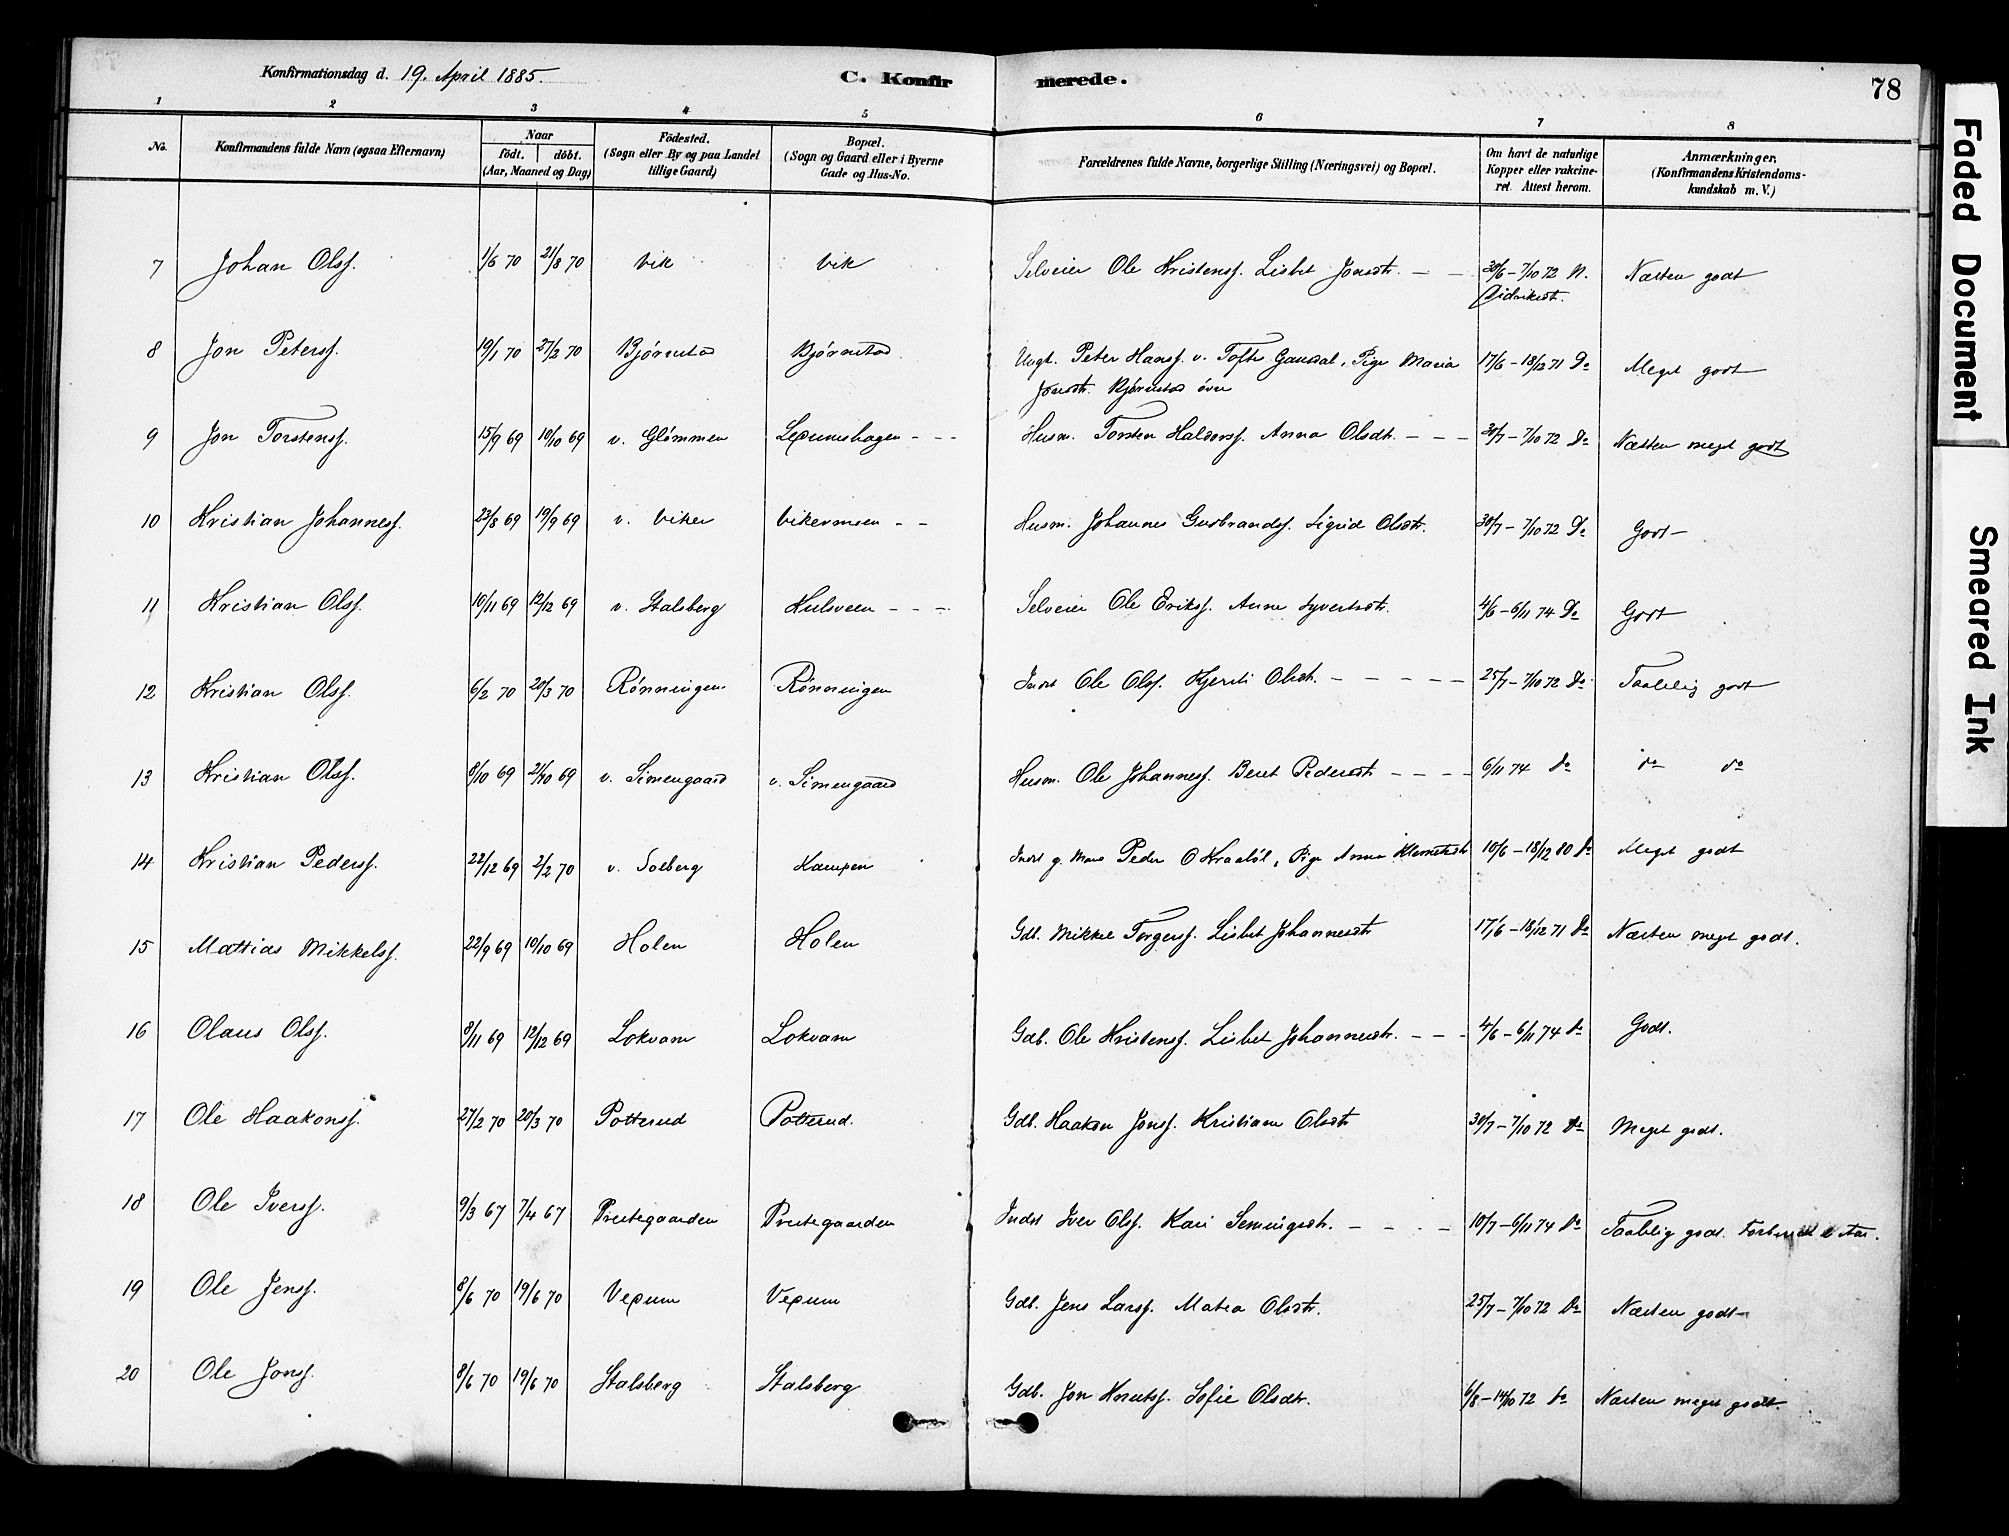 Konfirmationsdag d. 19. April 1885.
C. Konfirmerede.
78
1 2 3 4 5 6 7 8
No. Konfirmandens fulde Navn (ogsaa Efternavn) Naar født. | døbt. (Aar, Maaned og Dag) Fødested. (Sogn eller By og paa Landet tillige Gaard) Bopæl. (Sogn og Gaard eller i Byerne Gade og Hus-No. Forældrenes fulde Navne, borgerlige Stilling (Næringsvei) og Bopæl. Om havt de naturlige Kopper eller vakcineret. Attest herom. Anmærkninger. (Konfirmandens Kristendomskundskab m. V.)
7 Johan Olsf. 1/6 70 21/8 70 Vik Vik Selveier Ole Kristensf. Lisbet Jonsdtr. – – 30/6 – 7/10 72 N. Didriksdt. Næsten godt
8 Jon Petersf. 19/1 70 27/2 70 Bjørnstad Bjørnstad Ungk. Peter Hansf. v. Tofte Gausdal, Pige Maria Jonsdtr. Bjørnstad øvre 17/6 – 18/12 71 Do Meget godt
9 Jon Torstensf. 15/9 69 10/10 69 v. Glømmen Lexumshagen – – – Husm. Torsten Haldorsf. Anna Olsdtr. – – – 30/7 – 7/10 72 Do Næsten meget godt
10 Kristian Johannesf. 23/8 69 19/9 69 v. Viker Vikermoen – – Husm. Johannes Gudbrandsf. Sigrid Olsdtr. 30/7 – 7/10 72 Do Godt –
11 Kristian Olsf. 10/11 69 12/12 69 v. Stalsberg Hulsveen – – – Selveier Ole Eriksf. Anne Syvertsdtr. 4/6 – 6/11 74 Do Godt
12 Kristian Olsf. 6/2 70 20/3 70 Rønningen Rønningen Indst Ole Olsf. Kjersti Olsdtr. – – – – – 25/7 – 7/10 72 Do Taalelig godt
13 Kristian Olsf. 8/10 69 21/10 69 v. Simengaard v. Simengaard Husm. Ole Johannesf. Beret Pedersdtr – – – – 6/11 74 do do do
14 Kristian Pedersf. 22/12 69 2/2 70 v. Solberg Kampen Indst g. Mand Peder O Kraabøl, Pige Anna Klemetsdtr 10/6 – 18/12 80 do Meget godt
15 Mattias Mikkelsf. 22/9 69 10/10 69 Holen Holen Gdb. Mikkel Torgersf. Lisbet Johannesdtr 17/6 – 18/12 71 do Næsten meget godt.
16 Olaus Olsf. 8/11 69 12/12 69 Lokvam Lokvam Gdb. Ole Kristensf. Lisbet Johannesdtr. – – – 4/6 – 6/11 74 do Godt.
17 Ole Haakonsf. 27/2 70 20/3 70 Potterud Potterud. Gdb. Haakon Jonsf. Kristiane Olsdtr 30/7 – 7/10 72 do Meget godt.
18 Ole Iversf. 9/3 67 7/4 67 Prestegaarden Prestegaarden Indst Iver Olsf. Kari Semingsdtr. – – – – 10/7 – 6/11 74 do Taalelig godt. Aar.
19 Ole Jensf. 8/6 70 19/6 70 Vexum Vexum Gdb. Jens Larsf. Matea Olsdtr. 25/7 – 7/10 72 do Næsten godt –
20 Ole Jonsf. 8/6 70 19/6 70 Stalsberg Stalsberg Gdb. Jon Knutsf. Sofie Olsdtr. 6/8 – 14/10 72 do Næsten meget godt.
Faded Document
Smeared Ink